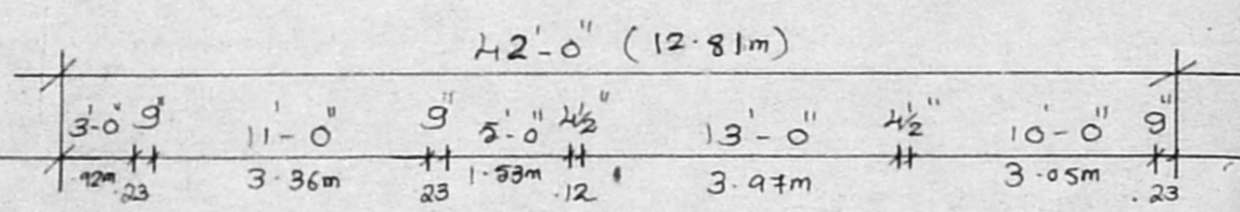 42'-0" (12.81m)
3'-0" 9" 11'-0" 9" 5'-0" 4½" 13'-0" 4½" 10'-0" 9"
.92m .23 3.36m .23 1.53m .12 3.97m 3.05m .23